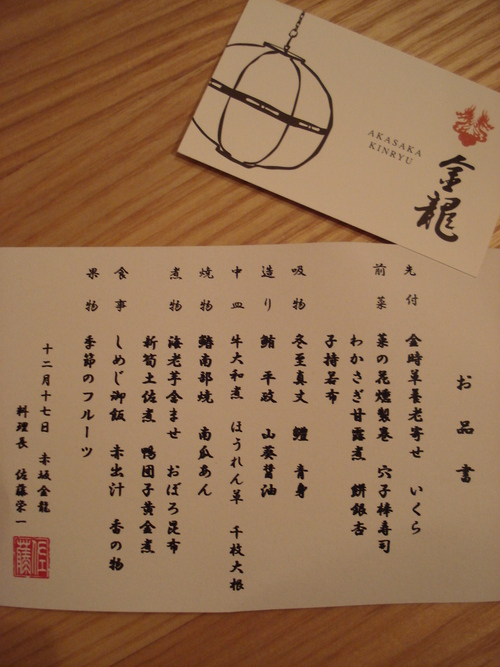 AKASAKA
KINRYU
金龍
お品書
先付 金時草養老寄せ いくら
前菜 菜の花燻製巻 穴子棒寿司
わかさぎ甘露煮 餅銀杏
子持若布
吸物 冬至真丈 鱧 青身
造り 鮪 平政 山葵醤油
中皿 牛大和煮 ほうれん草 千枝大根
焼物 鰆南部焼 南瓜あん
煮物 海老芋含ませ おぼろ昆布
新筍土佐煮 鴨団子黄金煮
食事 しめじ御飯 赤出汁 香の物
果物 季節のフルーツ
十二月十七日 赤坂金龍
料理長 佐藤栄一
佐藤